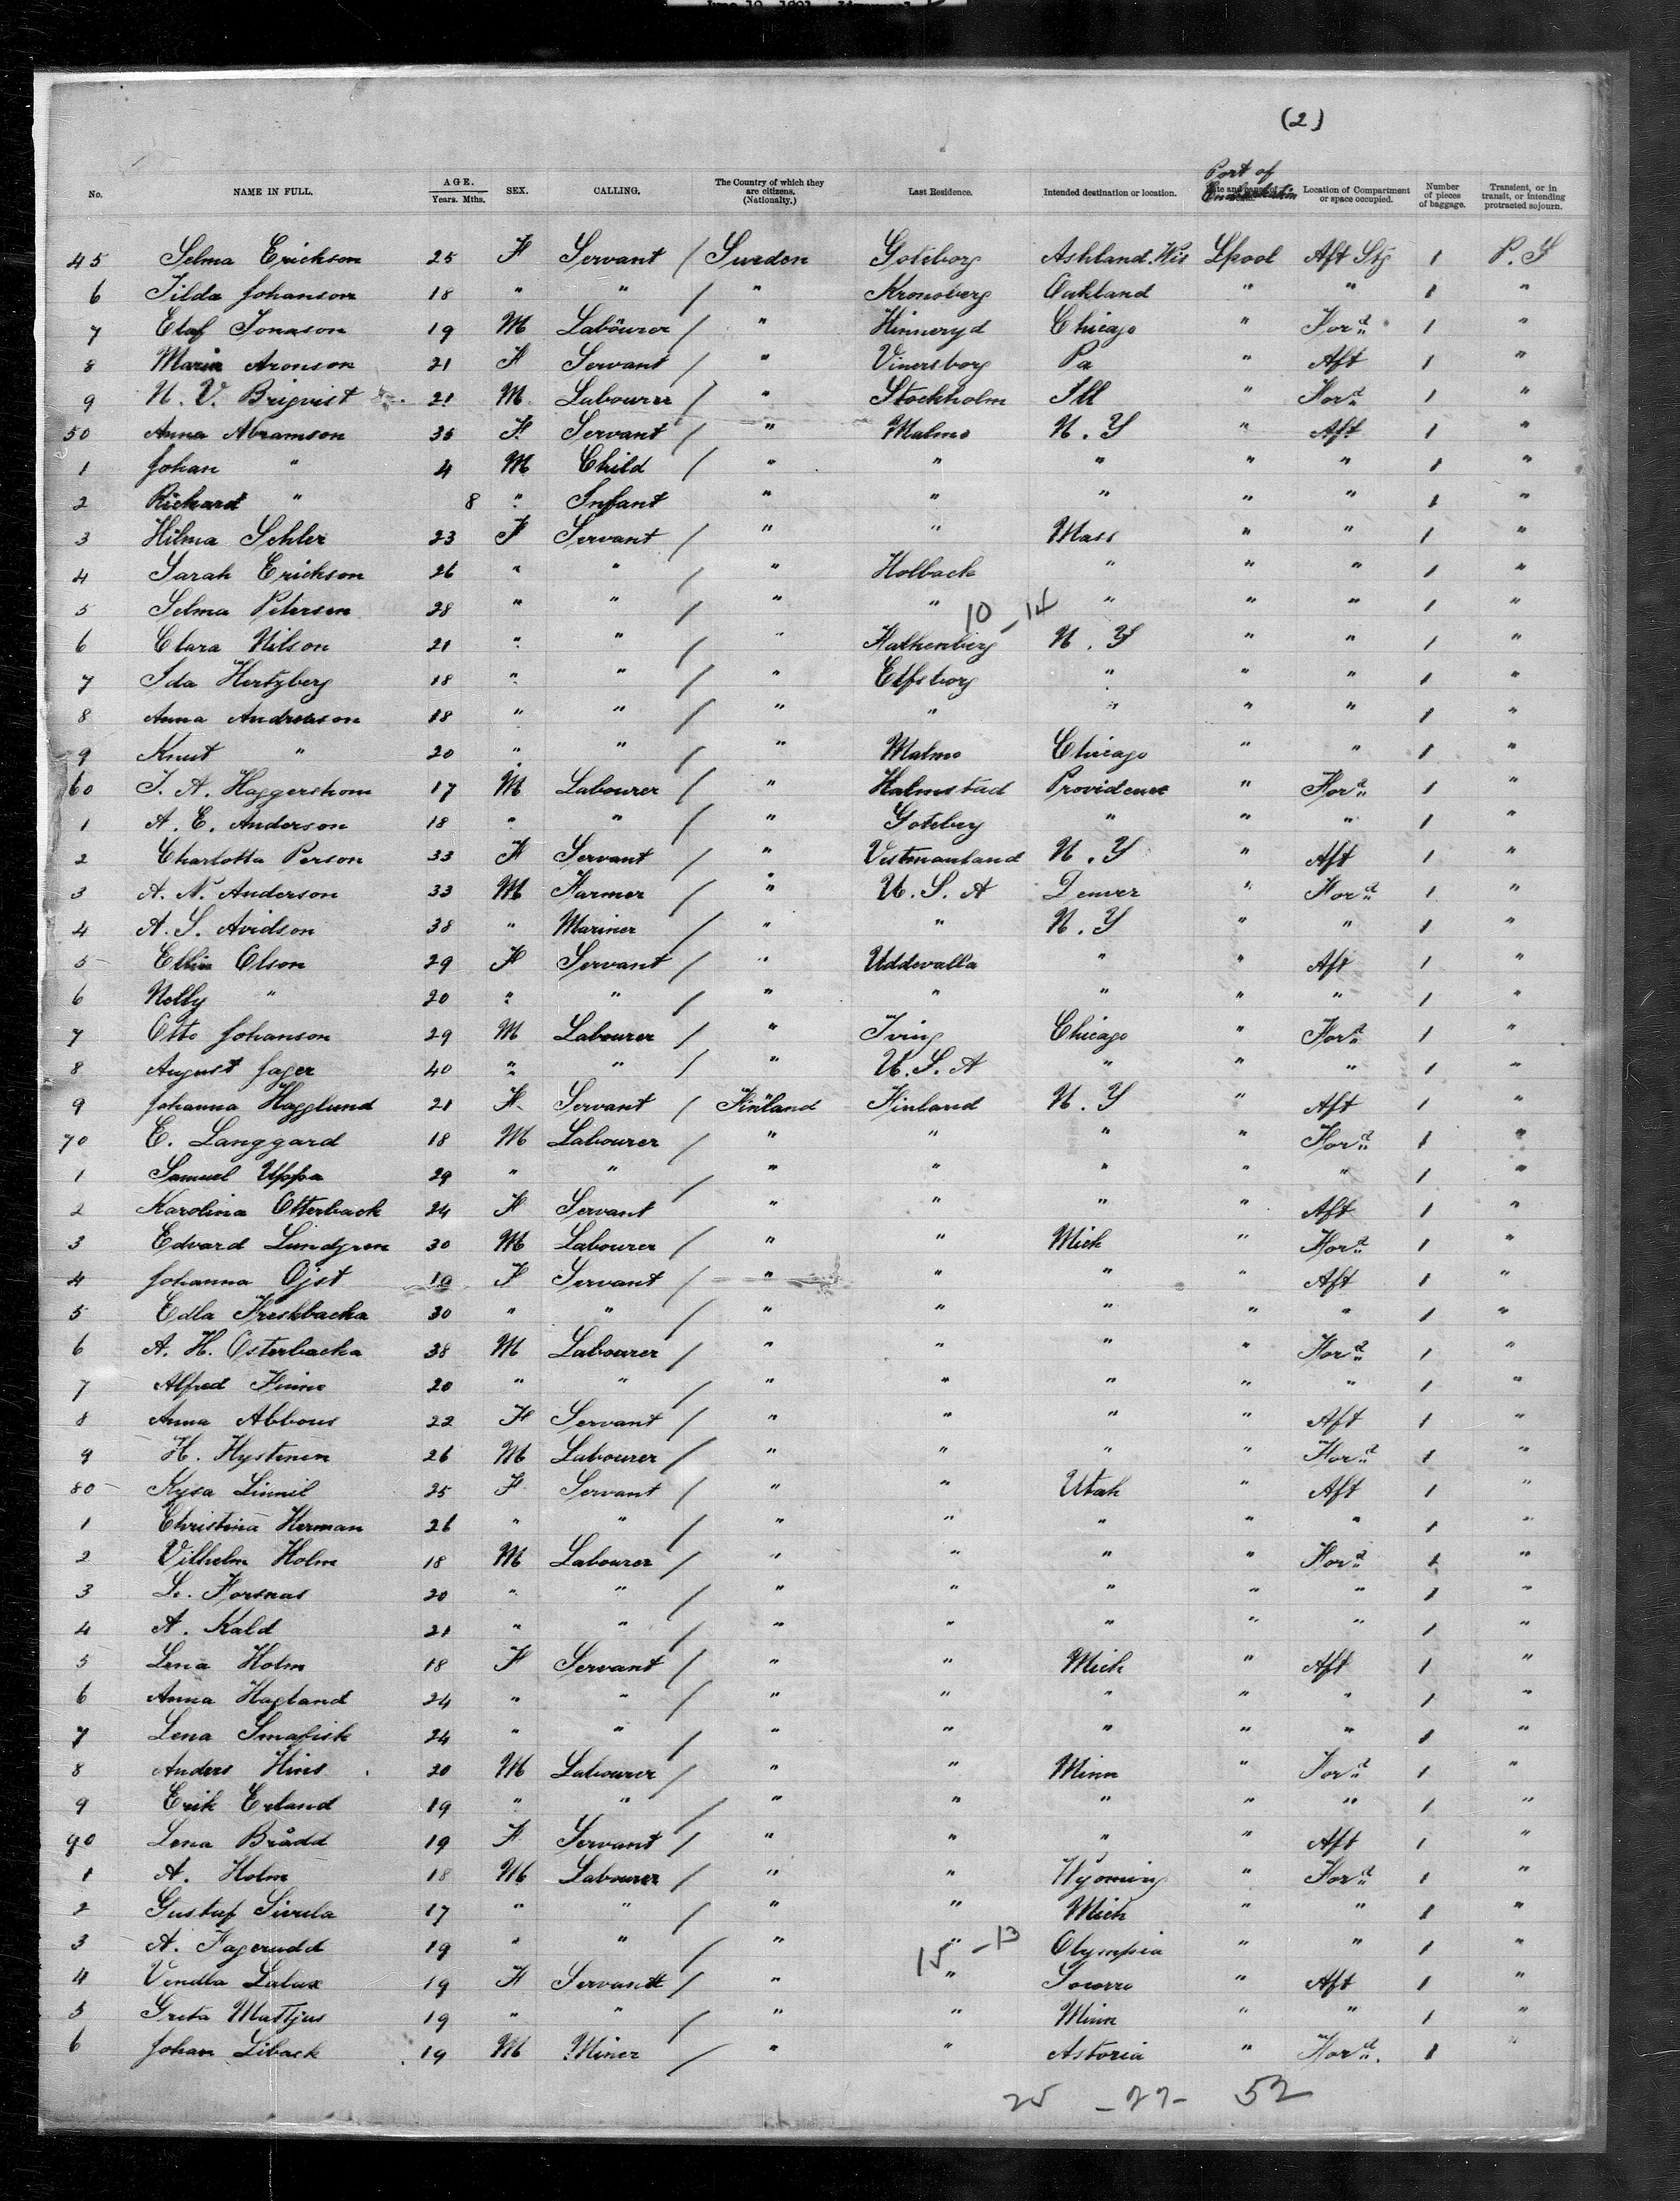 (2)
Port of
Embarkation
No. NAME IN FULL. AGE. Years. Mths. SEX. CALLING. The Country of which they are citizens. (Nationalty.) Last Residence. Intended destination or location. Location of Compartment or space occupied. Number of pieces of baggage. Transient, or in transit, or intending protracted sojourn.
45 Selma Erickson 25 F Servant / Sweden Goteborg Ashland. Wis Lpool Aft Stg 1 P. S
6 Tilda Johanson 18 " " / " Kronoberg Oakland " " 1 "
7 Elof Jonason 19 M Labourer / " Hinneryd Chicago " Ford 1 "
8 Maria Aronson 21 F Servant / " Vinersborg Pa " Aft 1 "
9 N. V. Briqvist 21 M Labourer / " Stockholm Ill " Ford 1 "
50 Anna Abramson 35 F Servant / " Malmo N. Y " Aft 1 "
1 Johan " 4 M Child / " " " " " 1 "
2 Richard " 8 " Infant " " " " " 1 "
3 Hilma Sehler 23 F Servant / " " Mass " " 1 "
4 Sarah Erickson 26 " " / " Holback " " " 1 "
5 Selma Petersen 28 " " / " " " " " 1 "
10 - 14
6 Clara Nilson 21 " " / " Falkenberg N. Y " " 1 "
7 Ida Hertzberg 18 " " / " Elfsborg " " " 1 "
8 Anna Andreasson 18 " " / " " " " " 1 "
9 Knut " 20 " " / " Malmo Chicago " " 1 "
60 J. A. Haggershom 17 M Labourer / " Halmstad Providence " Ford 1 "
1 A. E. Anderson 18 " " / " Goteberg " " " 1 "
2 Charlotta Person 33 F Servant / " Vestmanland N. Y " Aft 1 "
3 A. N. Anderson 33 M Farmer / " U. S. A Denver " Ford 1 "
4 A. S. Avidson 38 " Mariner / " " N. Y " " 1 "
5 Ellin Olson 29 F Servant / " Uddevalla " " Aft 1 "
6 Nelly " 20 " " / " " " " " 1 "
7 Otto Johanson 29 M Labourer / " Iving Chicago " Ford 1 "
8 August Jager 40 " " / " U. S. A " " " 1 "
9 Johanna Hagglund 21 F Servant / Finland Finland N. Y " Aft 1 "
70 E. Langgard 18 M Labourer / " " " " Ford 1 "
1 Samuel Uppa 29 " " / " " " " " 1 "
2 Karolina Otterback 24 F Servant " " " " Aft 1 "
3 Edvard Lundgren 30 M Labourer / " " Mich " Ford 1 "
4 Johanna Ojst 19 F Servant / " " " " Aft 1 "
5 Edla Freskbacka 30 " " / " " " " " 1 "
6 A. H. Osterbacka 38 M Labourer / " " " " Ford 1 "
7 Alfred Finne 20 " " / " " " " " 1 "
8 Anna Abbous 22 F Servant / " " " " Aft 1 "
9 H. Hystenen 26 M Labourer / " " " " Ford 1 "
80 Kysa Linnil 25 F Servant / " " Utah " Aft 1 "
1 Christina Herman 26 " " / " " " " " 1 "
2 Vilhelm Holm 18 M Labourer / " " " " Ford 1 "
3 L. Forsnas 20 " " / " " " " " 1 "
4 A. Kald 21 " " / " " " " " 1 "
5 Lena Holm 18 F Servant / " " Mich " Aft 1 "
6 Anna Hagland 24 " " / " " " " " 1 "
7 Lena Smafisk 24 " " / " " " " " 1 "
8 Anders Hins 20 M Labourer / " " Minn " Ford 1 "
9 Erik Erland 19 " " / " " " " " 1 "
90 Lena Brådd 19 F Servant / " " " " Aft 1 "
1 A. Holm 18 M Labourer / " " Wyoming " Ford 1 "
2 Gustaf Sivula 17 " " / " " Mich " " 1 "
3 A. Fagerudd 19 " " / " " Olympia " " 1 "
15 - 13
4 Vendla Lalax 19 F Servant / " " Socorro " Aft 1 "
5 Greta Mattjus 19 " " / " " Minn " " 1 "
6 Johan Liback 19 M Miner / " " Astoria " Ford. 1 "
25 - 27 - 52